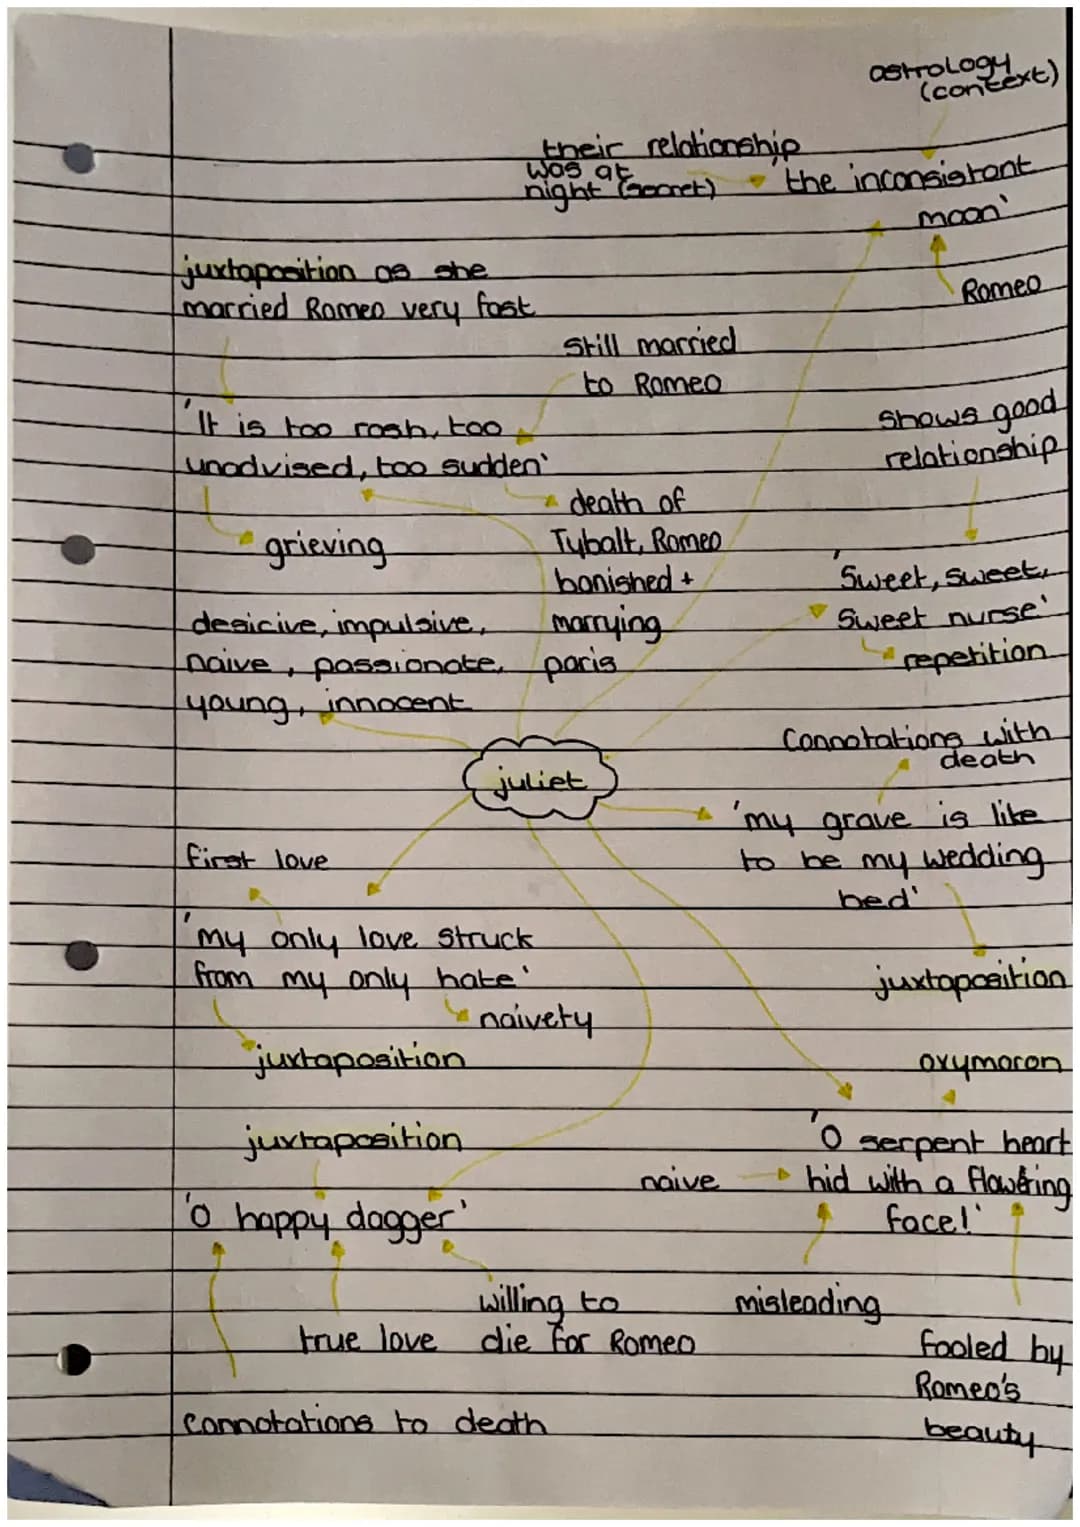 astrology
(context)
their relationship
was at
night (secret)
'the inconsistant
moon'
Romeo
juxtaposition as she
married Romeo very fast
still married
to Romeo
'It is too rash, too
unadvised, too sudden'
grieving
death of
Tybalt, Romeo
banished +
marrying
paris
shows good
relationship
'Sweet, sweet,
sweet nurse'
repetition
desicive, impulsive,
naive, passionate,
young, innocent
juliet
Connotations with
death
'my grave is like
to be my wedding
bed'
juxtaposition
first love
'my only love struck
from my only hate'
naivety
juxtaposition
oxymoron
'O serpent heart
hid with a flowering
face!'
naive
misleading
fooled by
Romeo's
beauty
juxtaposition
'O happy dagger'
willing to
die for Romeo
true love
connotations to death